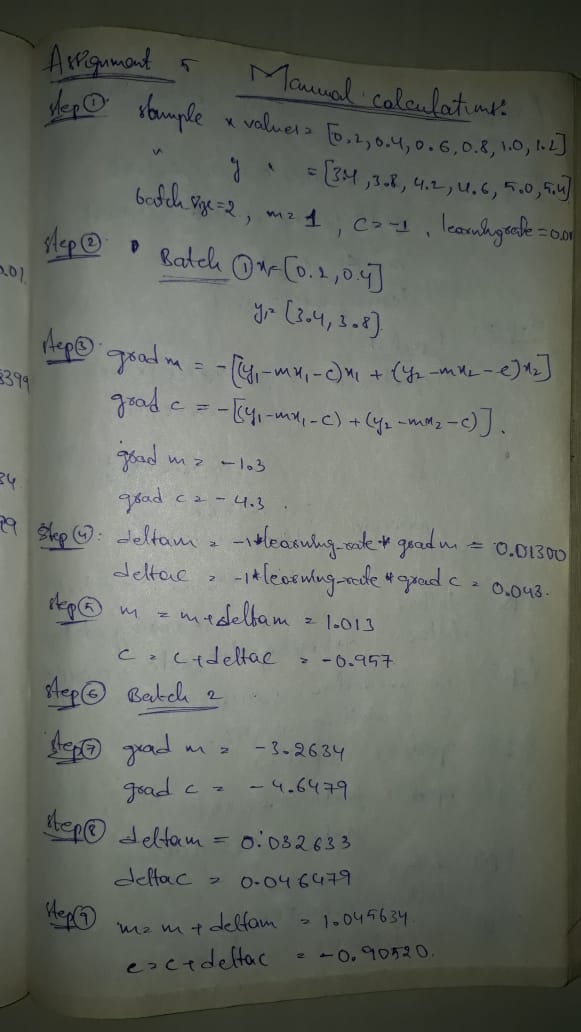 Assignment 5
Manual calculations:
Step ① sample x values = [0.2, 0.4, 0.6, 0.8, 1.0, 1.2]
" y " = [3.4, 3.8, 4.2, 4.6, 5.0, 5.4]
batch size = 2, m = 1, c = -1, learning rate = 0.01
Step ② Batch ① x = [0.2, 0.4]
y = [3.4, 3.8]
Step ③ grad m = -[(y₁ - mx₁ - c)x₁ + (y₂ - mx₂ - c)x₂]
grad c = -[(y₁ - mx₁ - c) + (y₂ - mx₂ - c)].
grad m = -1.3
grad c = -4.3.
Step ④: deltam = -1*learning_rate * grad m = 0.01300
deltac = -1*learning_rate * grad c = 0.043.
Step ⑤ m = m+deltam = 1.013
c = c+deltac = -0.957
Step ⑥ Batch 2
Step ⑦ grad m = -3.2634
grad c = -4.6479
Step ⑧ deltam = 0.032633
deltac = 0.046479
Step ⑨ m = m + deltam = 1.045634.
c = c+deltac = -0.90520.